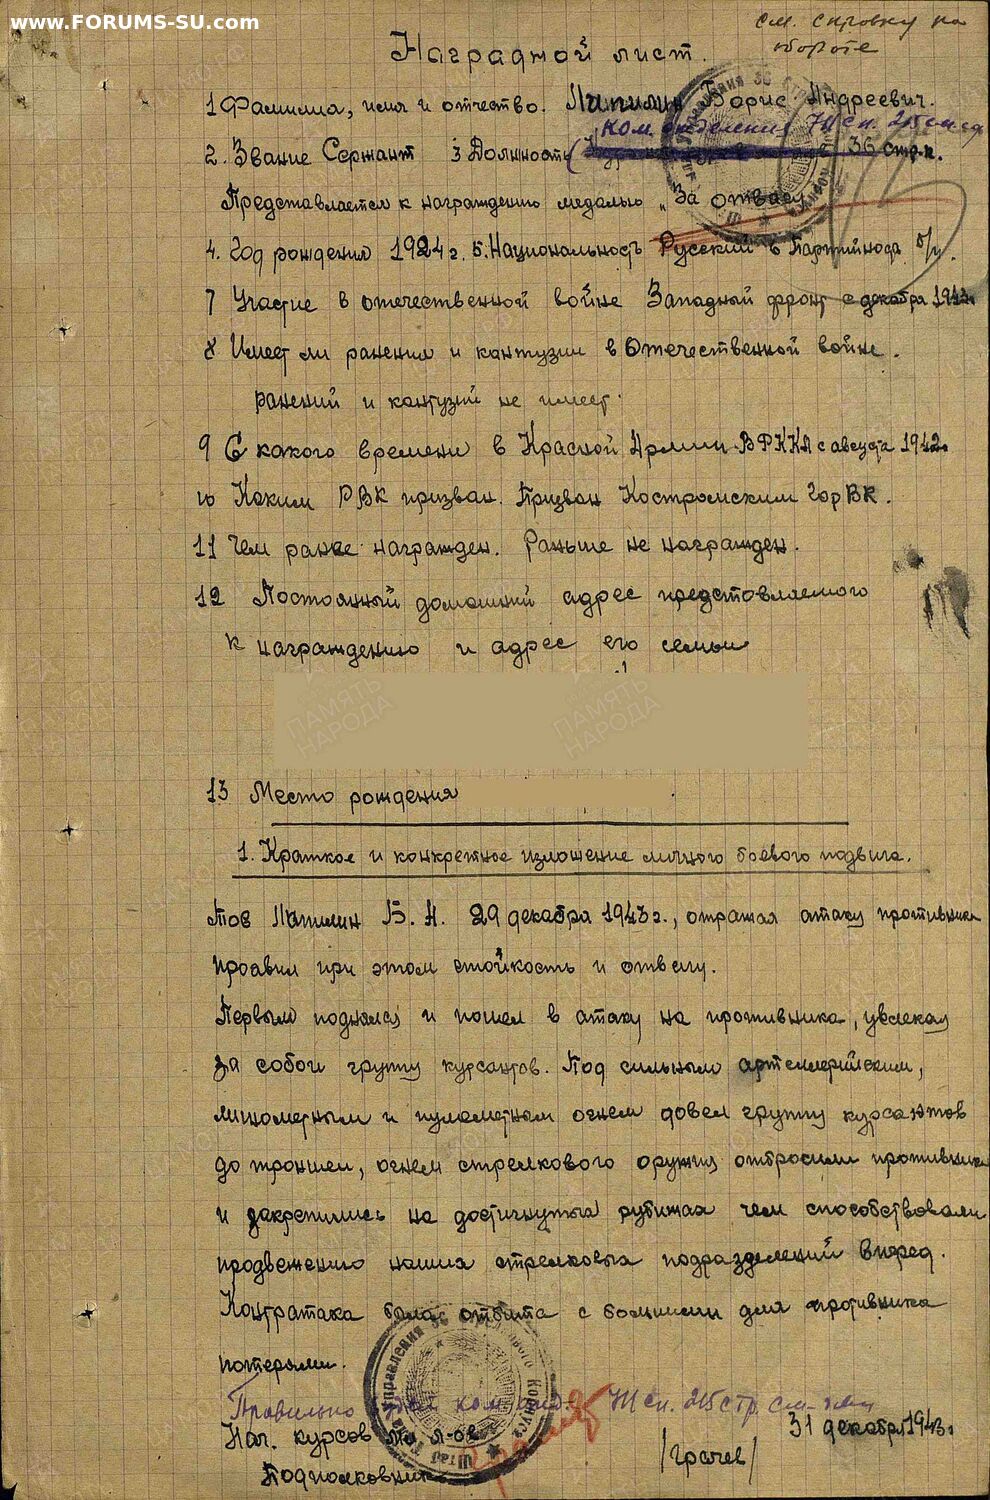 www.FORUMS-SU.com
см. справку на
обороте
Наградной лист.
1 Фамилия, имя и отчество. Липилин Борис Андреевич.
ком. отделения
2. Звание Сержант 3 Должность 36 стр.к.
Представляется к награждению медалью „За отвагу
4. Год рождения 1924 г. 5. Национальность Русский 6 Партийность б/п.
7 Участие в отечественной войне Западный фронт с декабря 1943г.
8 Имеет ли ранения и кантузии в Отечественной войне.
ранений и кантузий не имеет.
9 С какого времени в Красной Армии. В РККА с августа 1942г.
10 Каким РВК призван. Призван Костромским Гор ВК.
11 Чем ранее награжден. Раньше не награжден.
12 Постоянный домашний адрес представляемого
к награждению и адрес его семьи
ПАМЯТЬ НАРОДА
ПАМЯТЬ НАРОДА
13 Место рождения
1. Краткое и конкретное изложение личного боевого подвига.
Тов Липилин Б. А. 29 декабря 1943 г., отражая атаку противника
проавил при этом стойкость и отвагу.
Первым поднялся и пошел в атаку на противника, увлекая
за собой группу курсантов. Под сильным артиллерийским,
минометным и пулеметным огнем довел группу курсантов
до траншеи, огнем стрелкового оружия отбросили противника
и закрепились на достигнутых рубежах чем способствовали
продвежению наших стрелковых подразделений вперед.
Контратака была отбита с большими для противника
потерями.
Правильно
Нач. курсов мл л-ов
31 декабря 1943г.
Подполковник /Грачев/